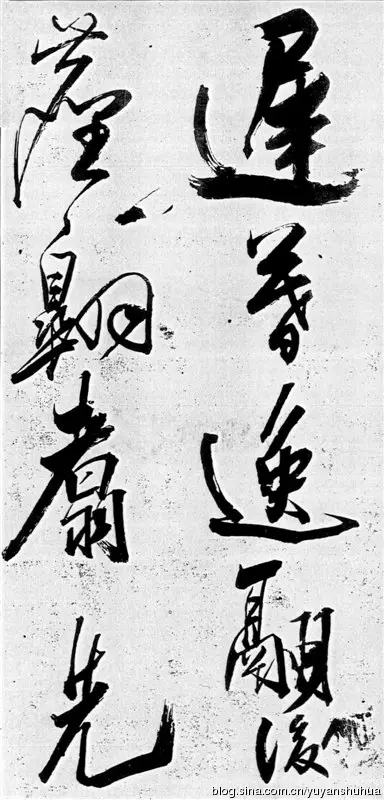 遲暮逸翮後
塵翱翥先
blog.sina.com.cn/yuyanshuhua